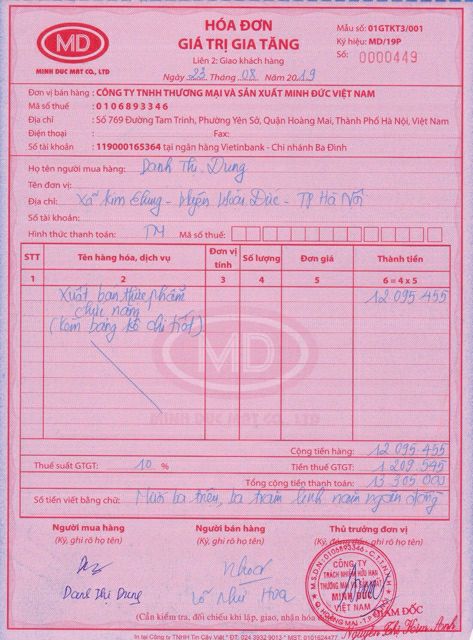 HÓA ĐƠN
GIÁ TRỊ GIA TĂNG
Liên 2: Giao khách hàng
Ngày 23 Tháng 08 Năm 2019
Mẫu số: 01GTKT3/001
Ký hiệu: MD/19P
Số: 0000449
MD
MINH DUC MAT CO., LTD
Đơn vị bán hàng: CÔNG TY TNHH THƯƠNG MẠI VÀ SẢN XUẤT MINH ĐỨC VIỆT NAM
Mã số thuế : 0106893346
Địa chỉ : Số 769 Đường Tam Trinh, Phường Yên Sở, Quận Hoàng Mai, Thành Phố Hà Nội, Việt Nam
Điện thoại : Fax:
Số tài khoản : 119000165364 tại ngân hàng Vietinbank - Chi nhánh Ba Đình
Họ tên người mua hàng: Danh Thị Dung
Tên đơn vị:
Địa chỉ: Xã Kim Chung - Huyện Hoài Đức - TP Hà Nội
Số tài khoản:
Hình thức thanh toán: TM Mã số thuế:
STT Tên hàng hóa, dịch vụ Đơn vị tính Số lượng Đơn giá Thành tiền
1 2 3 4 5 6 = 4 x 5
Xuất bán thực phẩm 12 095 455
chức năng
(Kèm bảng kê chi tiết)
MD
MINH DUC MAT CO., LTD
Cộng tiền hàng: 12 095 455
Thuế suất GTGT: 10 % Tiền thuế GTGT: 1 209 545
Tổng cộng tiền thanh toán: 13 305 000
Số tiền viết bằng chữ: Mười ba triệu, ba trăm linh năm ngàn đồng
Người mua hàng Người bán hàng Thủ trưởng đơn vị
(Ký, ghi rõ họ tên) (Ký, ghi rõ họ tên) (Ký, đóng dấu, ghi rõ họ tên)
M.S.D.N: 0106893346 - C.T.T.N.H.H
CÔNG TY
TRÁCH NHIỆM HỮU HẠN
THƯƠNG MẠI VÀ SẢN XUẤT
MINH ĐỨC
VIỆT NAM
Q. HOÀNG MAI - T.P HÀ NỘI
Danh Thị Dung Lỗ Như Hoa
GIÁM ĐỐC
Nguyễn Thị Kim Anh
(Cần kiểm tra, đối chiếu khi lập, giao, nhận hóa đơn)